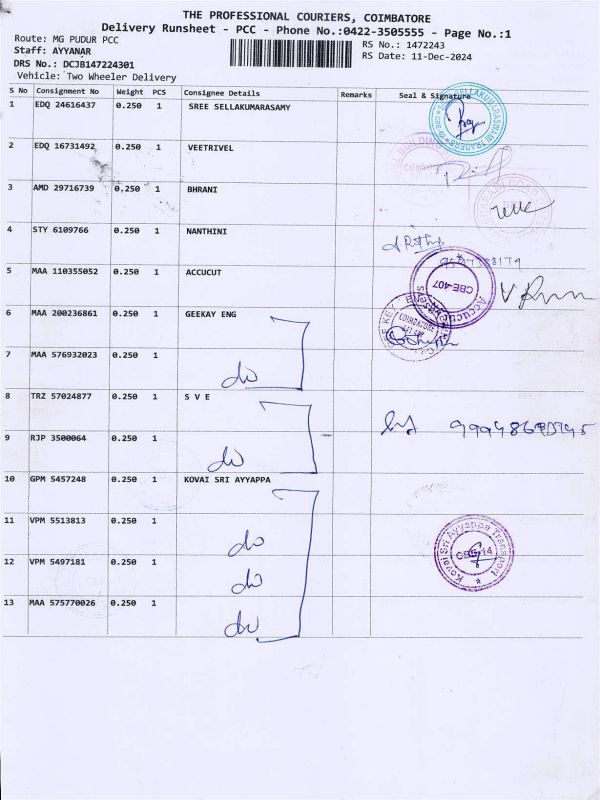 THE PROFESSIONAL COURIERS, COIMBATORE
Delivery Runsheet - PCC - Phone No.:0422-3505555 - Page No.:1
Route: MG PUDUR PCC
RS No.: 1472243
Staff: AYYANAR
RS Date: 11-Dec-2024
DRS No.: DCJB147224301
Vehicle: Two Wheeler Delivery
S No Consignment No Weight PCS Consignee Details Remarks Seal & Signature
1 EDQ 24616437 0.250 1 SREE SELLAKUMARASAMY
2 EDQ 16731492 0.250 1 VEETRIVEL
Coimbatore
3 AMD 29716739 0.250 1 BHRANI
4 STY 6109766 0.250 1 NANTHINI
5 MAA 110355052 0.250 1 ACCUCUT
Accucut CBE-407
6 MAA 200236861 0.250 1 GEEKAY ENG
COIMBATORE
7 MAA 576932023 0.250 1
do
8 TRZ 57024877 0.250 1 S V E
9 RJP 3500064 0.250 1
do
10 GPM 5457248 0.250 1 KOVAI SRI AYYAPPA
11 VPM 5513813 0.250 1
do
Kovai Sri Ayyappa Transport
12 VPM 5497181 0.250 1
do
13 MAA 575770026 0.250 1
do